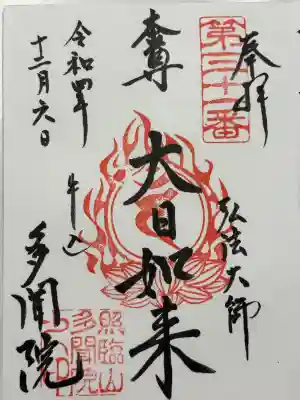 奉拝
弘法大師
第三十一番
本尊
大日如来
牛込
多聞院
令和四年
十二月六日
照臨山
多聞院